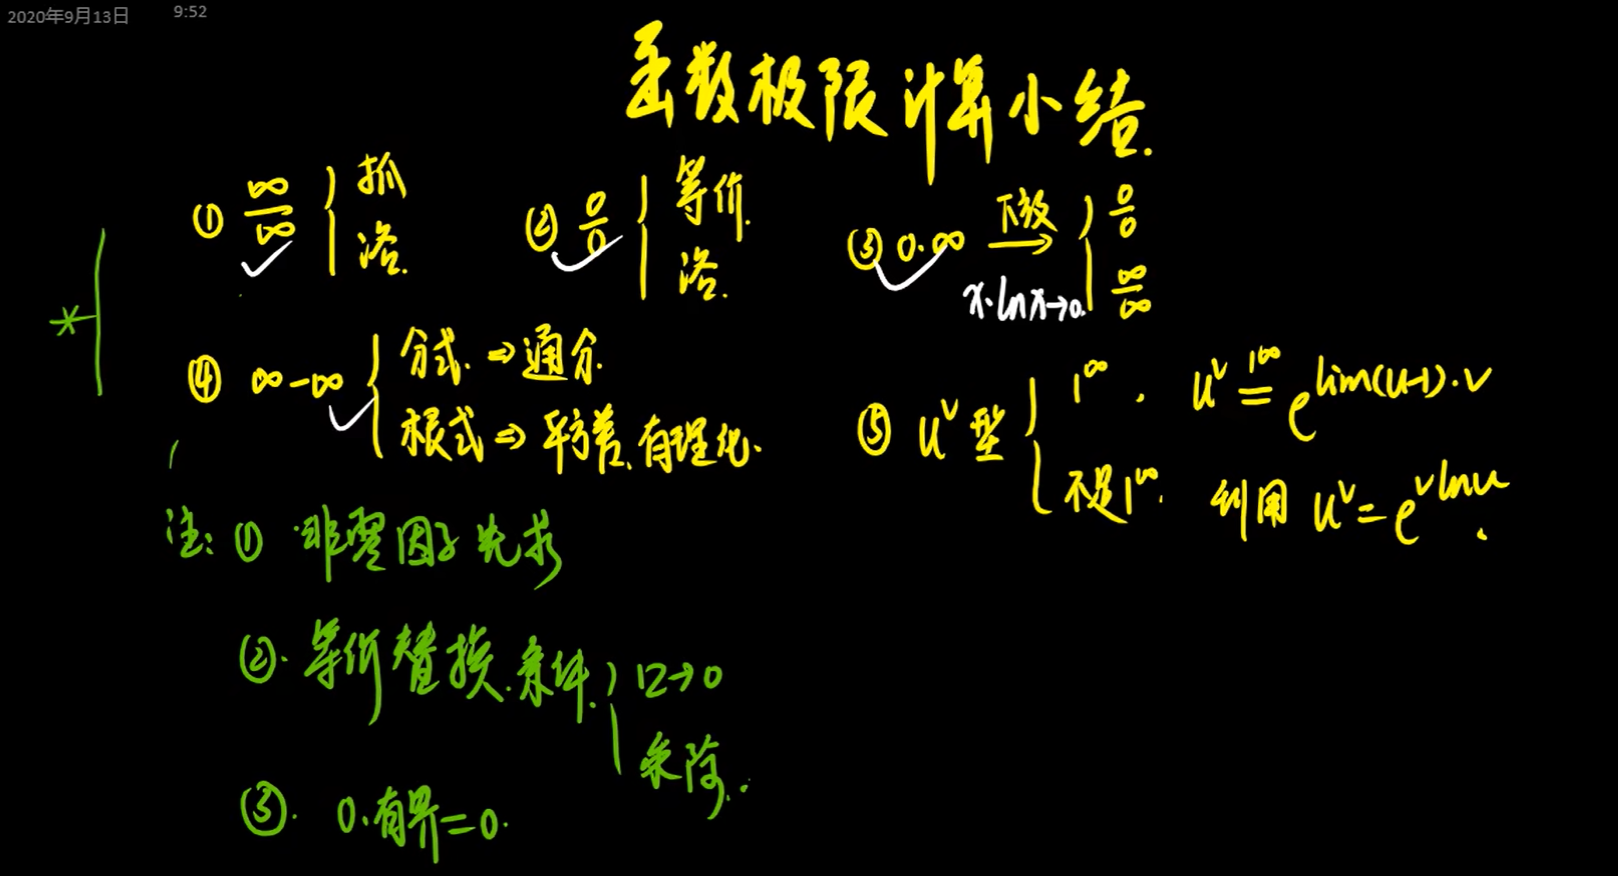 2020年9月13日 9:52
函数极限计算小结.
① ∞/∞ { 抓 洛.
② 0/0 { 等价. 洛.
③ 0·∞ 下放→ { 0/0 ∞/∞
x·lnx→0.
④ ∞-∞ { 分式. ⇒通分. 根式⇒平方差、有理化.
⑤ u^v型 { 1^∞. u^v =(1^∞) e^{lim(u-1)·v} 不是1^∞. 利用 u^v = e^{v lnu}.
*
注: ① 非零因子先求
②. 等价替换.条件. { 口→0 乘除.
③. 0·有界=0.